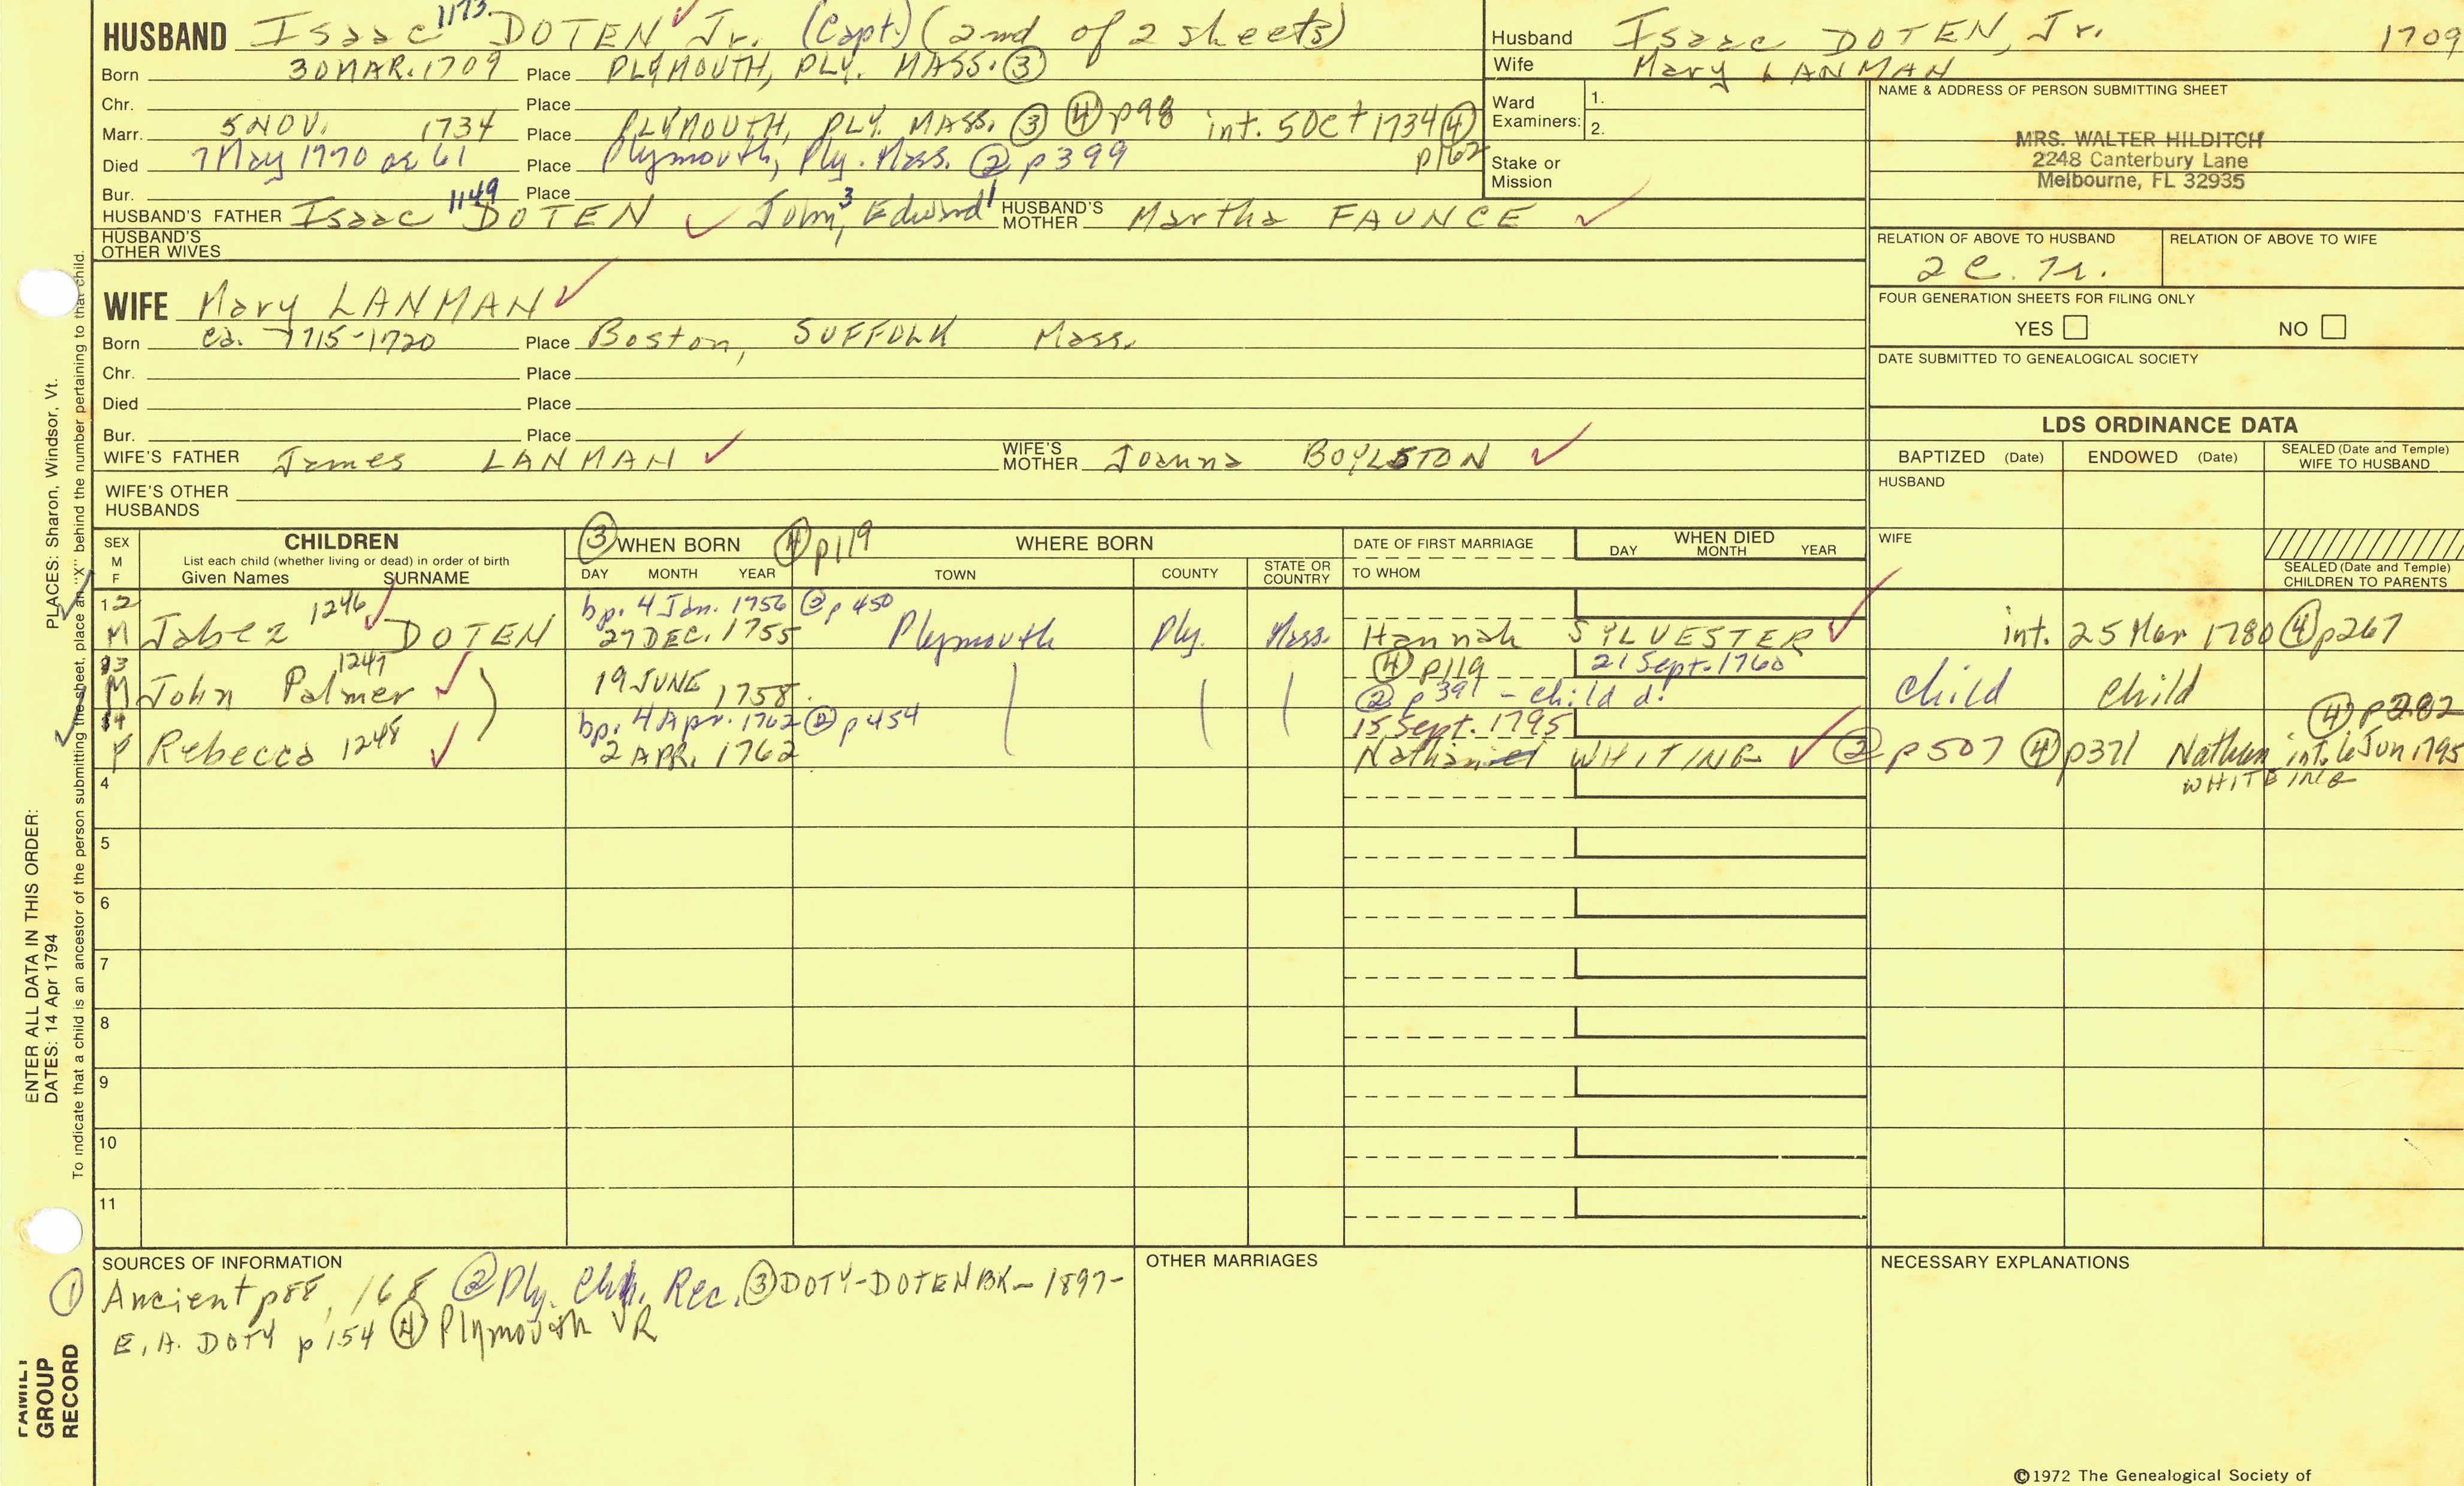 HUSBAND Isaac 1173. DOTEN Jr. (Capt.) (2nd of 2 sheets)
Born 30 MAR. 1709 Place PLYMOUTH, PLY. MASS. ③
Chr. Place
Marr. 5 NOV. 1734 Place PLYMOUTH, PLY. MASS. ③ ④ p98 int. 5 Oct 1734 ④ p162
Died 7 May 1770 ae 61 Place Plymouth, Ply. Mass. ② p399
Bur. Place
HUSBAND'S FATHER Isaac 1149 DOTEN John3, Edward1 HUSBAND'S MOTHER Martha FAUNCE
HUSBAND'S OTHER WIVES
WIFE Mary LANMAN
Born ca. 1715-1720 Place Boston, SUFFOLK Mass.
Chr. Place
Died Place
Bur. Place
WIFE'S FATHER James LANMAN WIFE'S MOTHER Joanna BOYLSTON
WIFE'S OTHER HUSBANDS
Husband Isaac DOTEN, Jr. 1709
Wife Mary LANMAN
Ward Examiners: 1.
2.
Stake or Mission
NAME & ADDRESS OF PERSON SUBMITTING SHEET
MRS. WALTER HILDITCH
2248 Canterbury Lane
Melbourne, FL 32935
RELATION OF ABOVE TO HUSBAND RELATION OF ABOVE TO WIFE
FOUR GENERATION SHEETS FOR FILING ONLY
YES NO
DATE SUBMITTED TO GENEALOGICAL SOCIETY
LDS ORDINANCE DATA
BAPTIZED (Date) ENDOWED (Date) SEALED (Date and Temple) WIFE TO HUSBAND
HUSBAND
WIFE
SEALED (Date and Temple) CHILDREN TO PARENTS
SEX M F CHILDREN
List each child (whether living or dead) in order of birth
Given Names SURNAME
③ WHEN BORN ④ p119 WHERE BORN
DAY MONTH YEAR TOWN COUNTY STATE OR COUNTRY
DATE OF FIRST MARRIAGE
TO WHOM
WHEN DIED
DAY MONTH YEAR
12 bp. 4 Jan. 1756 ② p 450
M Jabez 1246 DOTEN 27 DEC. 1755 Plymouth Ply. Mass. Hannah SYLVESTER int. 25 Mar 1780 ④ p267
13 1247 ④ p119 21 Sept. 1760
M John Palmer 19 JUNE 1758. ② p 391 - child d. child child
14 bp. 4 Apr. 1762 ② p454 15 Sept. 1795 ④ p282
F Rebecca 1248 2 APR. 1762 Nathaniel WHITING ② p507 ④ p371 Nathan WHITEING int. 6 Jun 1795
4
5
6
7
8
9
10
11
SOURCES OF INFORMATION
① Ancient p88, 168 ② Ply. Chh. Rec. ③ DOTY-DOTEN BK- 1897-
E. A. DOTY p 154 ④ Plymouth VR
OTHER MARRIAGES
NECESSARY EXPLANATIONS
©1972 The Genealogical Society of
ENTER ALL DATA IN THIS ORDER:
DATES: 14 Apr 1794 PLACES: Sharon, Windsor, Vt.
To indicate that a child is an ancestor of the person submitting the sheet, place an "X" behind the number pertaining to that child.
FAMILY GROUP RECORD